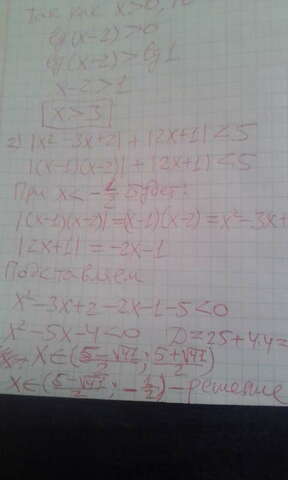 Так как x>0, то
lg(x-2)>0
lg(x-2)>lg1
x-2>1
x>3
2) |x²-3x+2|+|2x+1|<5
|(x-1)(x-2)|+|2x+1|<5
При x<-1/2 будет:
|(x-1)(x-2)|=(x-1)(x-2)=x²-3x+
|2x+1|=-2x-1
Подставляем
x²-3x+2-2x-1-5<0
x²-5x-4<0 D=25+4·4=
x∈(5-√41/2; 5+√41/2)
x∈(5-√41/2; -1/2)-решение